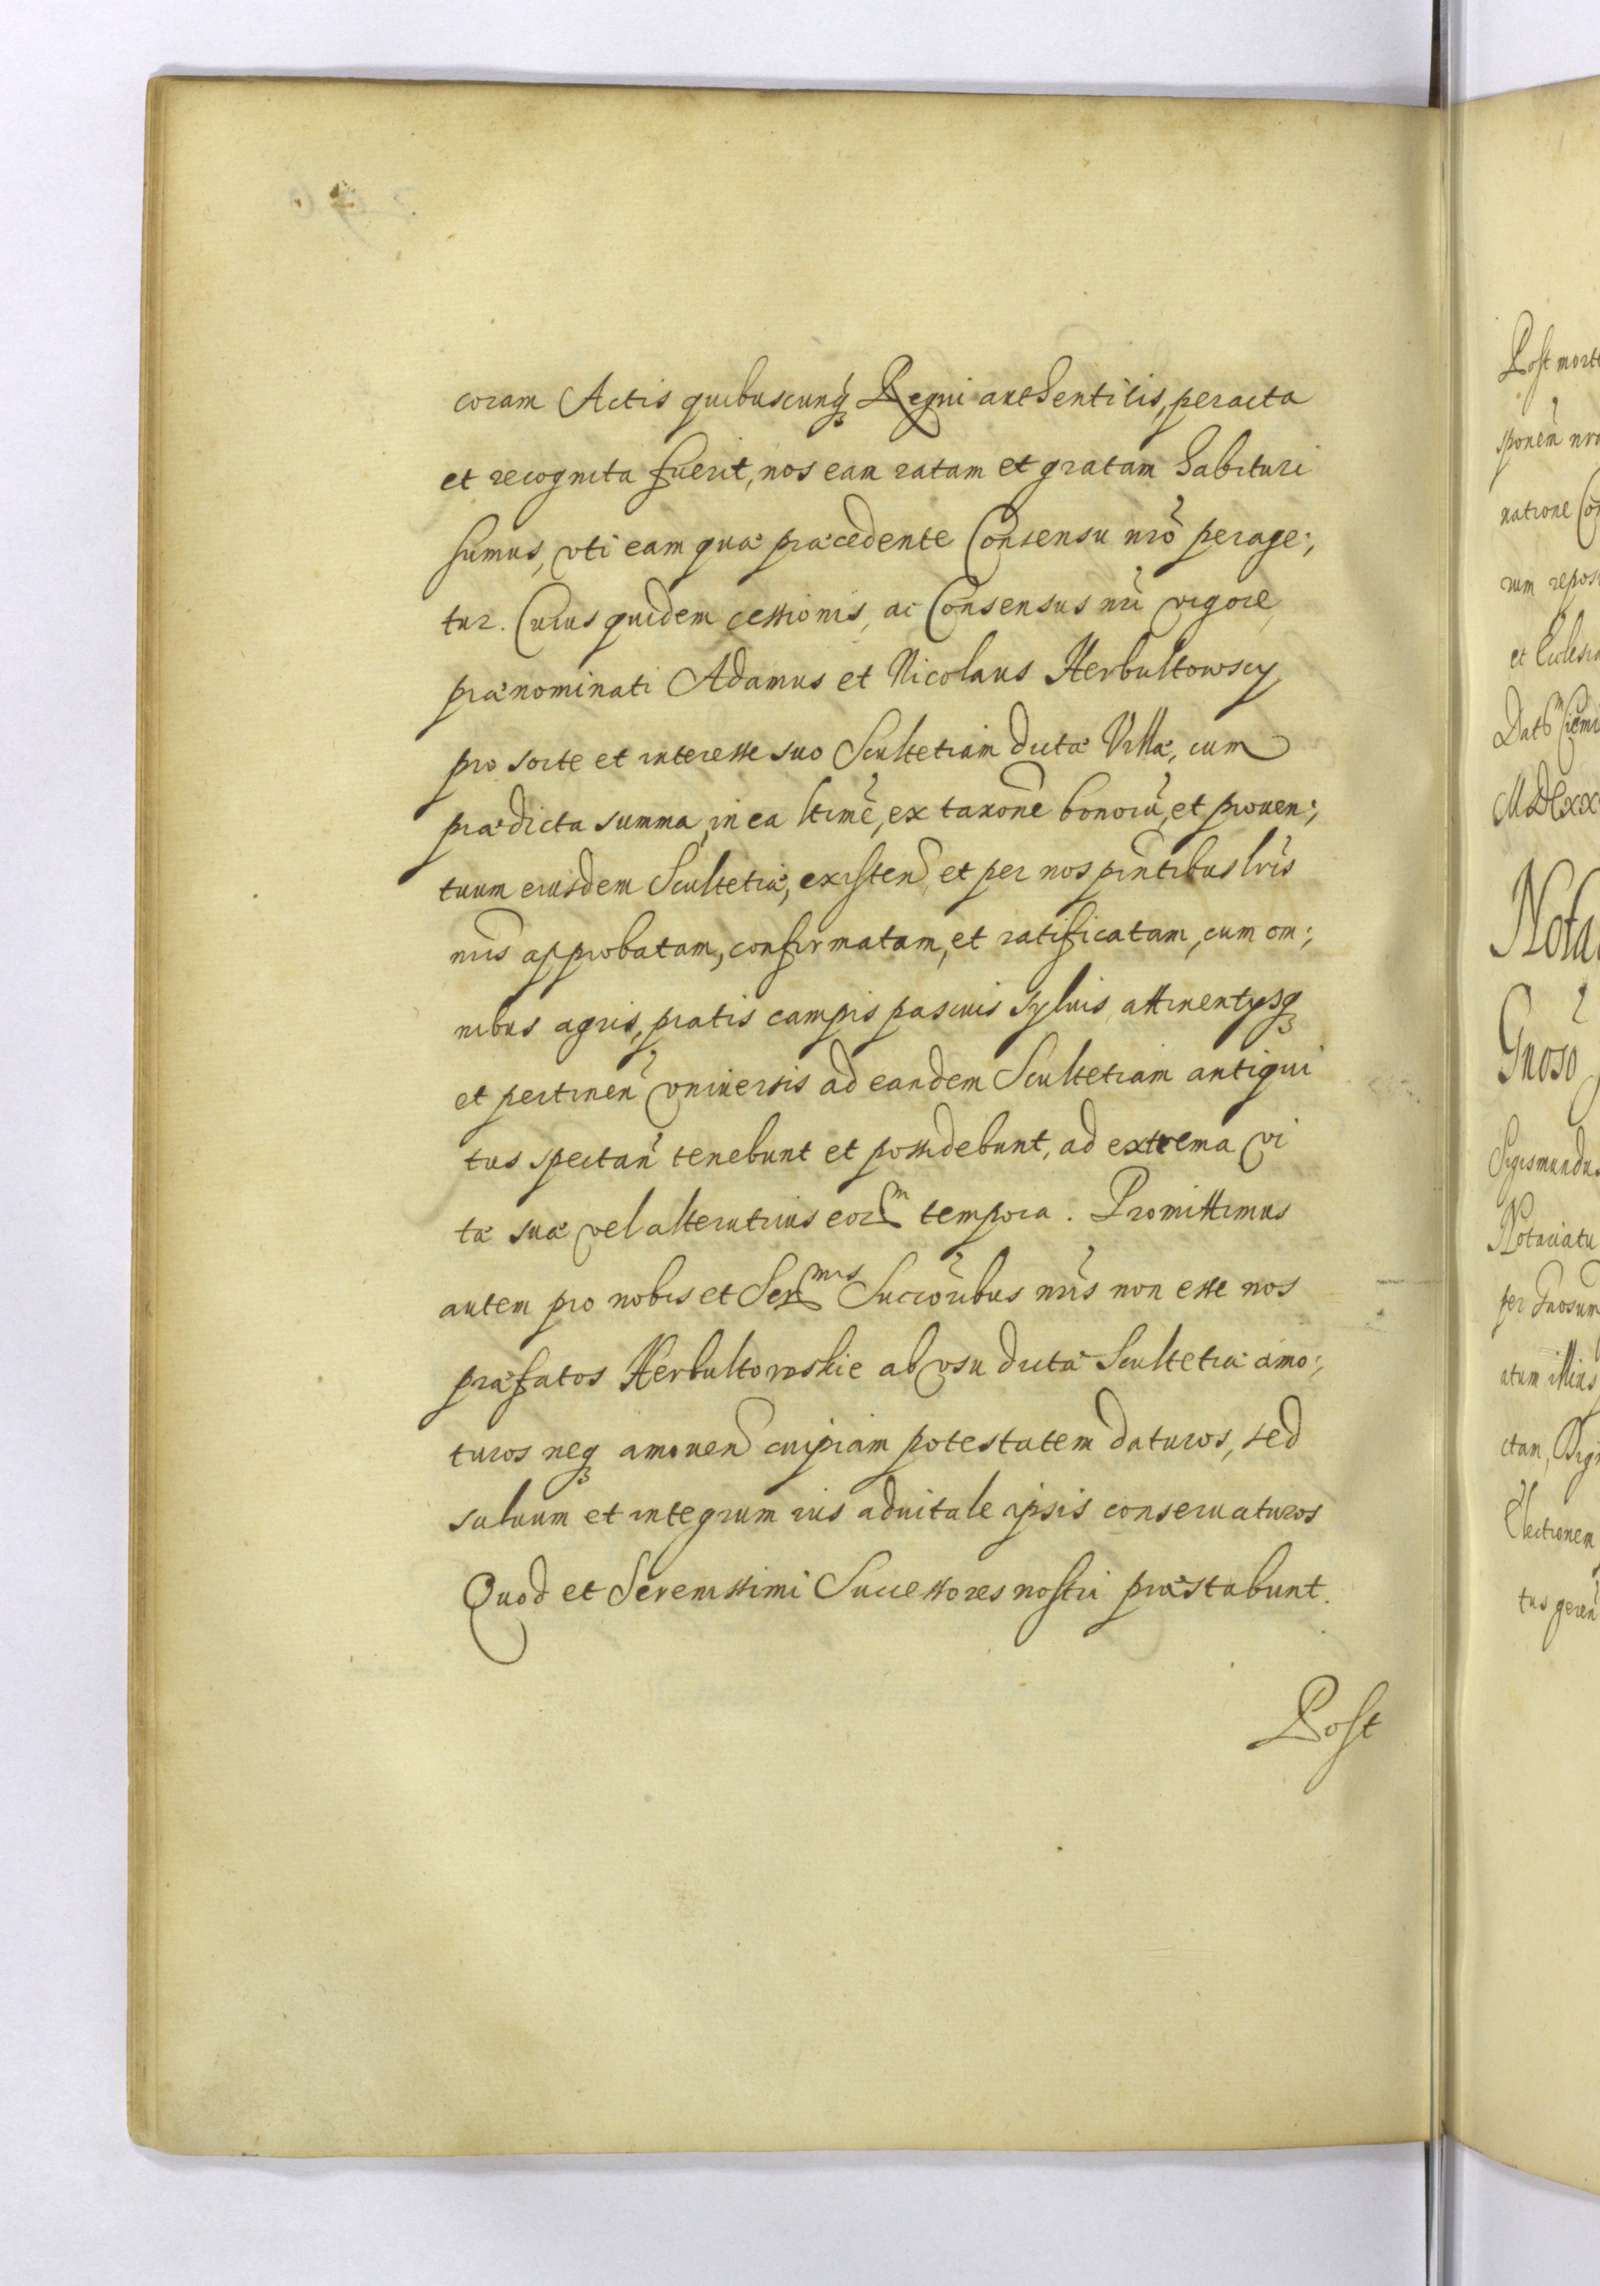 coram Actis quibuscunq₃ Regni authenticis, peracta
et recognita fuerit, nos eam ratam et gratam habituri
sumus, vti eam quæ præcedente Consensu nrõ perage:,
tur. Cuius quidem cessionis, ac Consensus nri vigore,
prænominati Adamus et Nicolaus Herbultowscy
pro sorte et interesse suo Scultetiam dictæ Villæ, cum
prædicta summa, in ea ltimẽ, ex taxone bonorũ, et prouen:,
tuum eiusdem Scultetiæ, existen, et per nos pntibus lris
nris approbatam, confirmatam, et ratificatam, cum om:,
nibus agris, pratis campis pascuis syluis, attinentysq₃
et pertinen vniuersis ad eandem Scultetiam antiqui
tus spectan tenebunt et possidebunt, ad extrema vi
tæ suæ vel alterutrius eorm tempora. Promittimus
autem pro nobis et Sermis Succoribus nris non esse nos
præfatos Herbultowskie ab vsu dictæ Scultetiæ amo:,
turos neq₃ amouen cuipiam potestatem daturos, sed
saluum et integrum ius aduitale ipsis conseruaturos
Quod et Serenissimi Successores nostri præstabunt.
Post
Post mort
sponen nra
natione Con
rum repos
et Eccles
MDLXX
Nota
Gnoso
Sigismundus
Notariatu
per Gnosum
atum illius
ctam, Dig
Electionem
tus geren